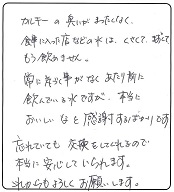 カルキーの臭いがまったくなく、
食事に入った店などの水は、くさくて、まずくて
もう飲めません。
常に考える事がなく あたり前に
飲んでいる水ですが、本当に
おいしいなと感謝するばかりです
忘れていても 交換をしてくれるので
本当に安心していられます。
これからもよろしくお願いします。